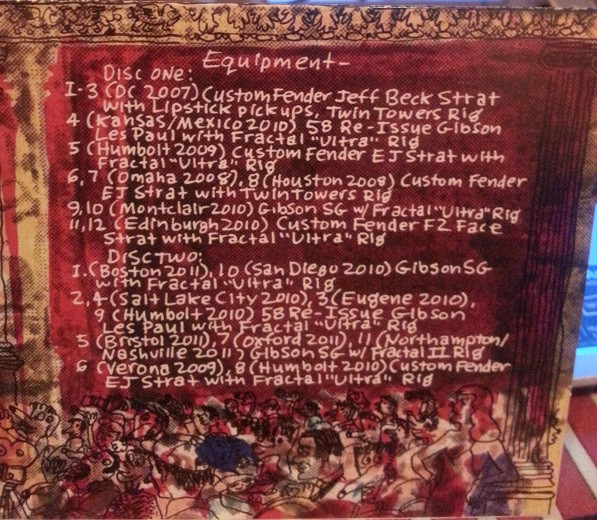 Equipment-
DISC ONE:
1-3 (DC 2007) Custom Fender Jeff Beck Strat
with Lipstick pickups, Twin Towers Rig
4 (Kansas/Mexico 2010) 58 Re-Issue Gibson
Les Paul with Fractal "Ultra" Rig
5 (Humbolt 2009) Custom Fender EJ Strat with
Fractal "Ultra" Rig
6,7 (Omaha 2008), 8 (Houston 2008) Custom Fender
EJ Strat with Twin Towers Rig
9,10 (Montclair 2010) Gibson SG w/ Fractal "Ultra" Rig
11,12 (Edinburgh 2010) Custom Fender FZ Face
Strat with Fractal "Ultra" Rig
DISC TWO:
1. (Boston 2011), 10 (San Diego 2010) Gibson SG
with Fractal "Ultra" Rig
2,4 (Salt Lake City 2010), 3 (Eugene 2010),
9 (Humbolt 2010) 58 Re-Issue Gibson
Les Paul with Fractal "Ultra" Rig
5 (Bristol 2011), 7 (Oxford 2011), 11 (Northampton/
Nashville 2011) Gibson SG w/ Fractal II Rig
6 (Verona 2009), 8 (Humbolt 2010) Custom Fender
EJ Strat with Fractal "Ultra" Rig